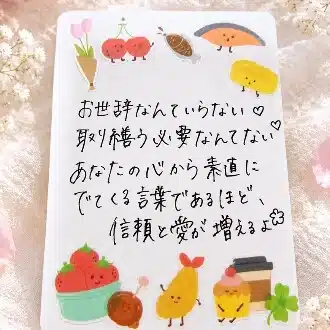 お世辞なんていらない♡
取り繕う必要なんてない♡
あなたの心から素直に
でてくる言葉であるほど、
信頼と愛が増えるよ